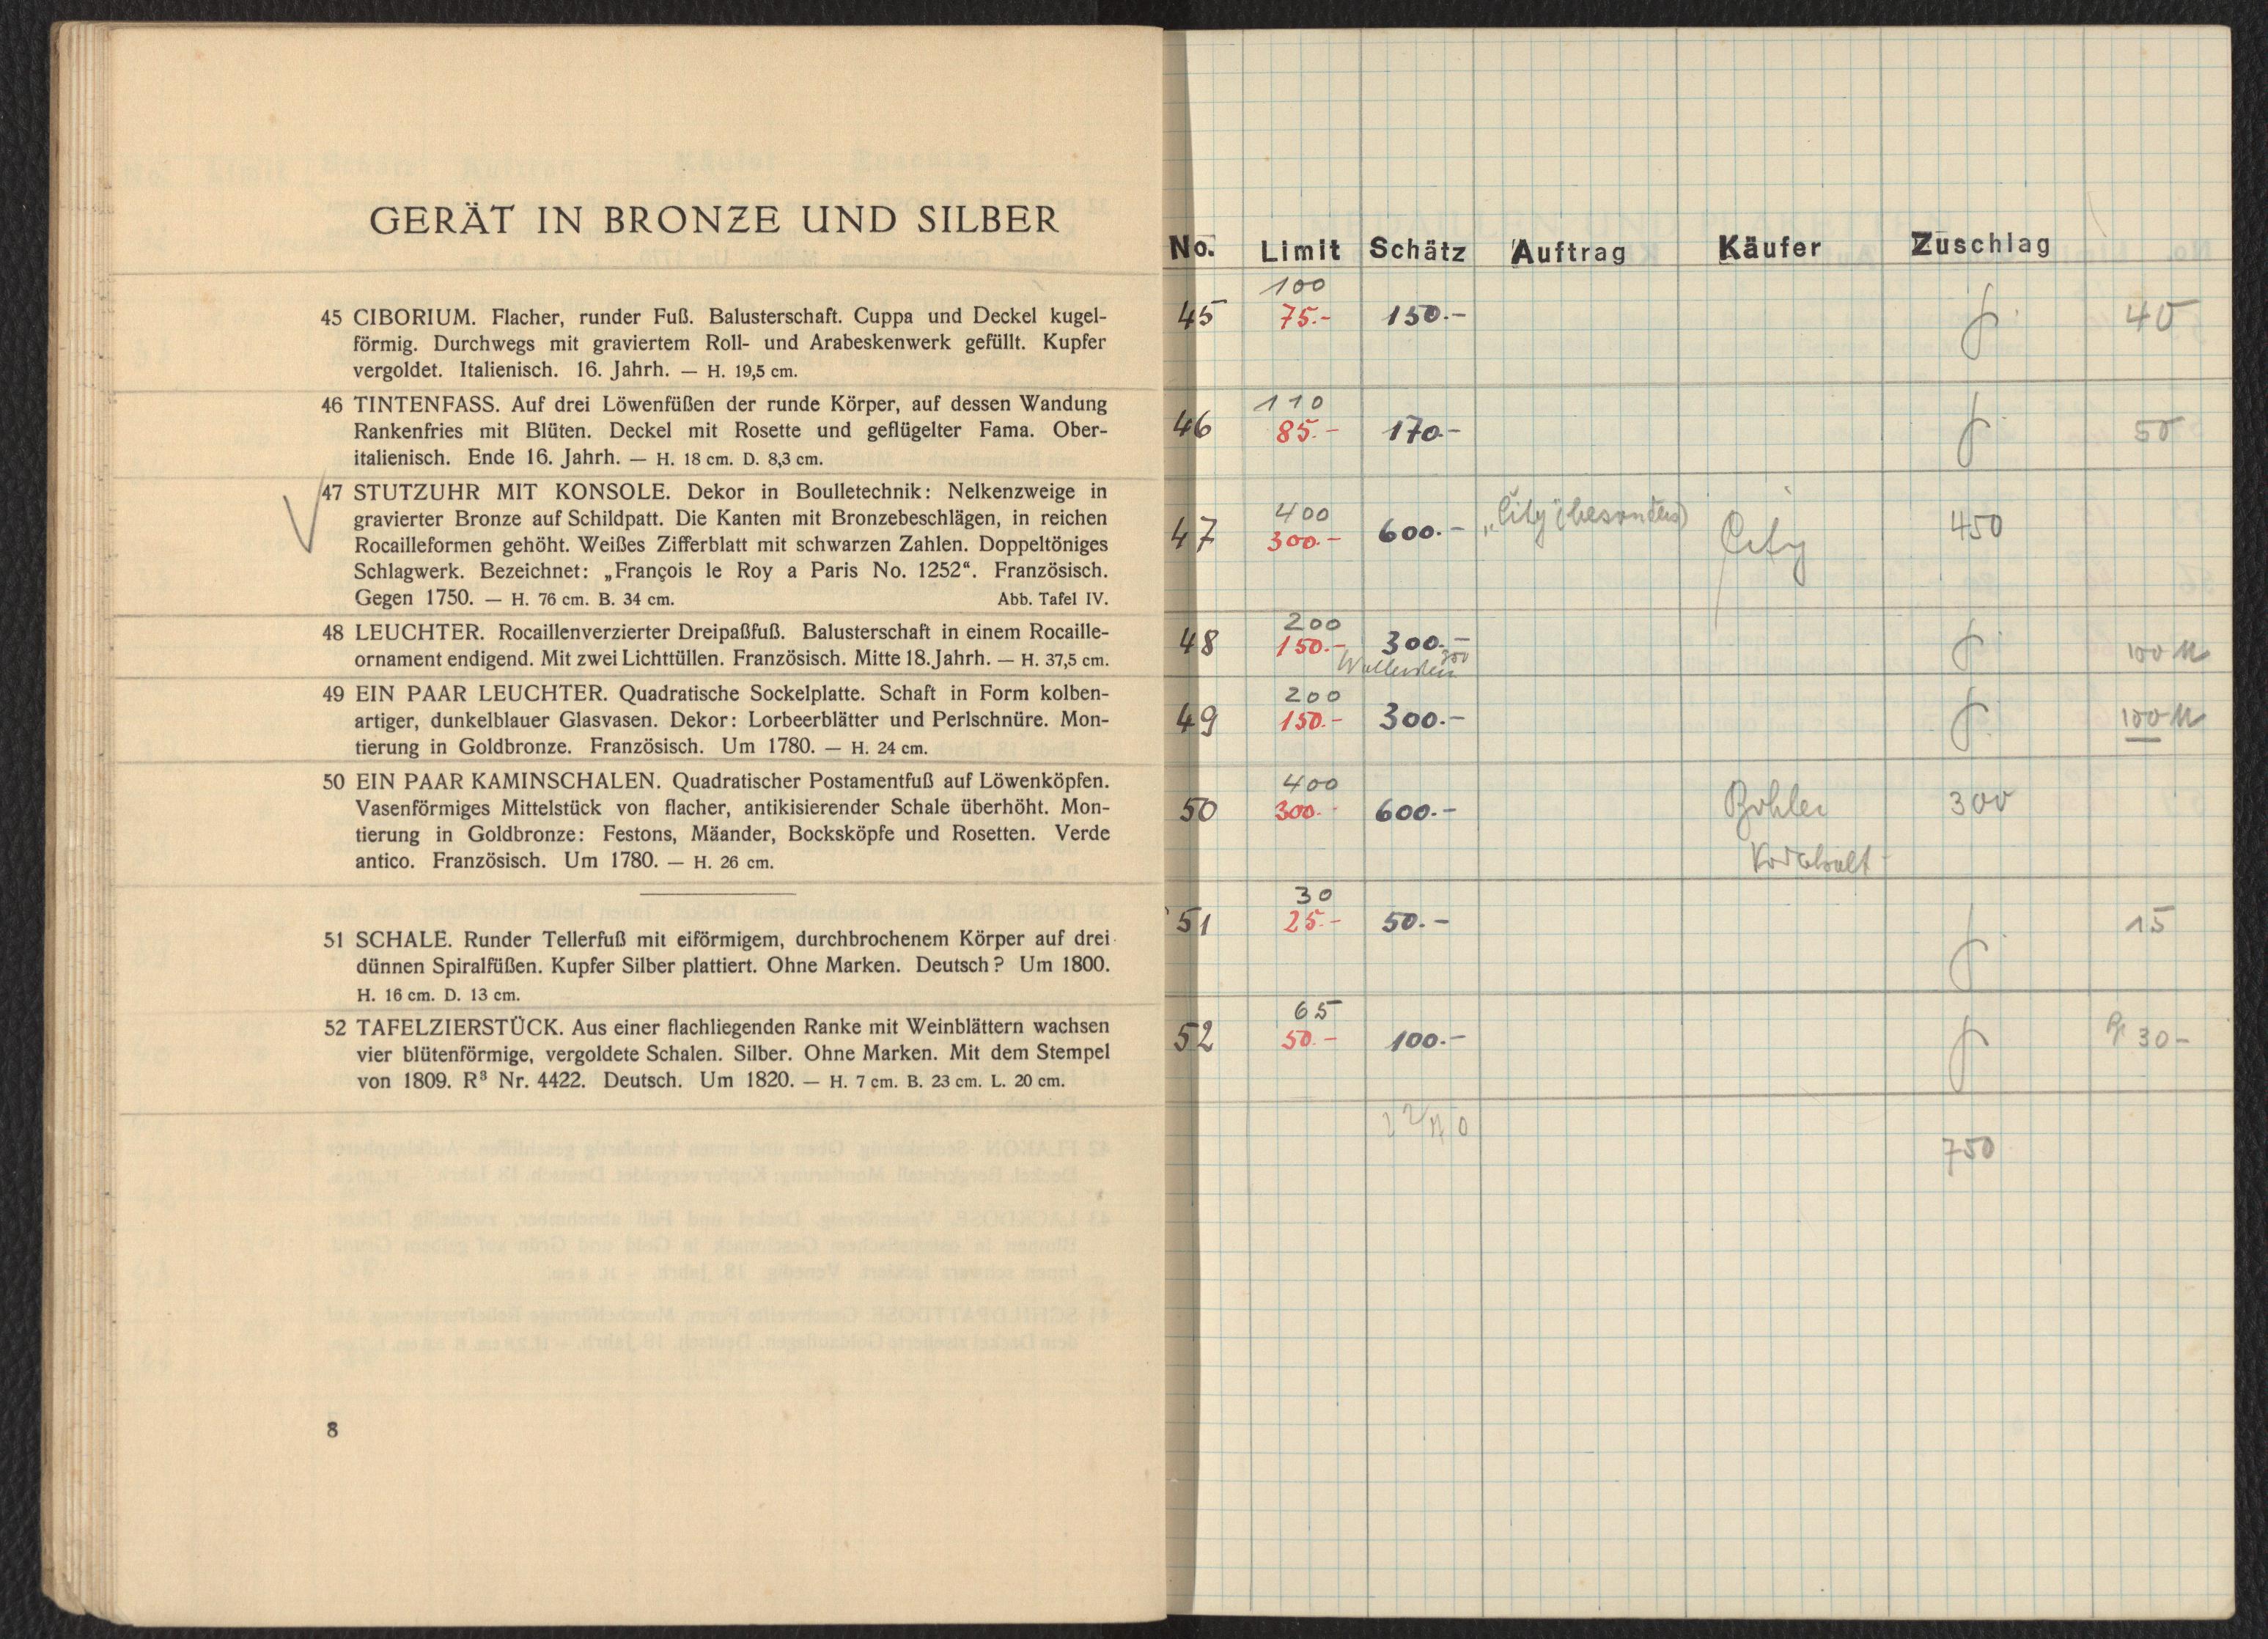 GERÄT IN BRONZE UND SILBER
45 CIBORIUM. Flacher, runder Fuß. Balusterschaft. Cuppa und Deckel kugel-
förmig. Durchwegs mit graviertem Roll- und Arabeskenwerk gefüllt. Kupfer
vergoldet. Italienisch. 16. Jahrh. — H. 19,5 cm.
46 TINTENFASS. Auf drei Löwenfüßen der runde Körper, auf dessen Wandung
Rankenfries mit Blüten. Deckel mit Rosette und geflügelter Fama. Ober-
italienisch. Ende 16. Jahrh. — H. 18 cm. D. 8,3 cm.
47 STUTZUHR MIT KONSOLE. Dekor in Boulletechnik: Nelkenzweige in
gravierter Bronze auf Schildpatt. Die Kanten mit Bronzebeschlägen, in reichen
Rocailleformen gehöht. Weißes Zifferblatt mit schwarzen Zahlen. Doppeltöniges
Schlagwerk. Bezeichnet: „François le Roy a Paris No. 1252“. Französisch.
Gegen 1750. — H. 76 cm. B. 34 cm. Abb. Tafel IV.
48 LEUCHTER. Rocaillenverzierter Dreipaßfuß. Balusterschaft in einem Rocaille-
ornament endigend. Mit zwei Lichttüllen. Französisch. Mitte 18. Jahrh. — H. 37,5 cm.
49 EIN PAAR LEUCHTER. Quadratische Sockelplatte. Schaft in Form kolben-
artiger, dunkelblauer Glasvasen. Dekor: Lorbeerblätter und Perlschnüre. Mon-
tierung in Goldbronze. Französisch. Um 1780. — H. 24 cm.
50 EIN PAAR KAMINSCHALEN. Quadratischer Postamentfuß auf Löwenköpfen.
Vasenförmiges Mittelstück von flacher, antikisierender Schale überhöht. Mon-
tierung in Goldbronze: Festons, Mäander, Bocksköpfe und Rosetten. Verde
antico. Französisch. Um 1780. — H. 26 cm.
51 SCHALE. Runder Tellerfuß mit eiförmigem, durchbrochenem Körper auf drei
dünnen Spiralfüßen. Kupfer Silber plattiert. Ohne Marken. Deutsch? Um 1800.
H. 16 cm. D. 13 cm.
52 TAFELZIERSTÜCK. Aus einer flachliegenden Ranke mit Weinblättern wachsen
vier blütenförmige, vergoldete Schalen. Silber. Ohne Marken. Mit dem Stempel
von 1809. R³ Nr. 4422. Deutsch. Um 1820. — H. 7 cm. B. 23 cm. L. 20 cm.
8
No. Limit Schätz Auftrag Käufer Zuschlag
100
45 75.- 150.- 40
110
46 85.- 170.- 50
400 „City (besonders)
47 300.- 600.- City 450
200
48 150.- 300.- 100
200
49 150.- 300.- 100
400
50 300.- 600.- Böhler 300
30
51 25.- 50.- 15
65
52 50.- 100.- 30-
750